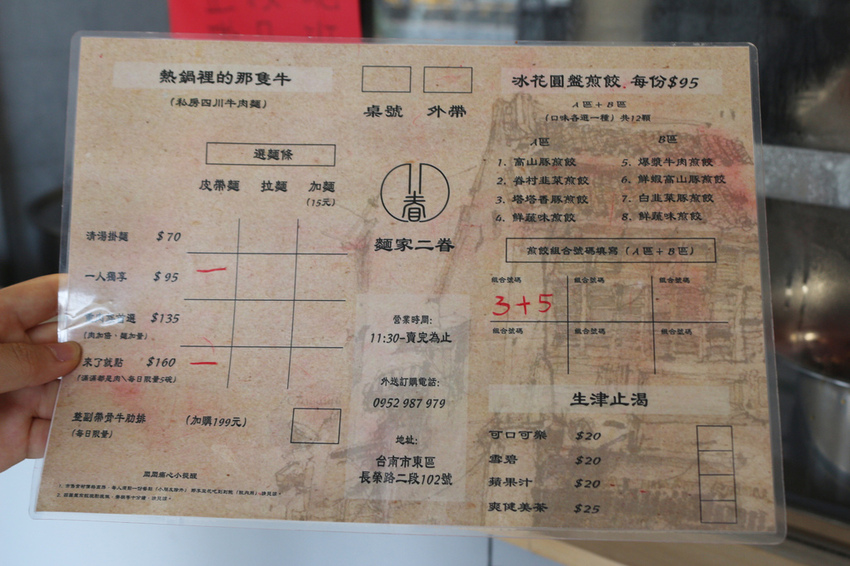 熱鍋裡的那隻牛
(私房四川牛肉麵)
選麵條
皮帶麵 拉麵 加麵
(15元)
清湯掛麵 $70
一人獨享 $95
$135
(肉加倍、麵加量)
來了就點 $160
(滿滿都是肉\每日限量5碗)
整副帶骨牛肋排 (加購199元)
(每日限量)
桌號 外帶
麵家二眷
營業時間:
11:30-賣完為止
外送訂購電話:
0952 987 979
地址:
台南市東區
長榮路二段102號
冰花圓盤煎餃 每份$95
A區+B區
(口味各選一種) 共12顆
A區 B區
1. 高山豚煎餃 5. 爆漿牛肉煎餃
2. 眷村韭菜煎餃 6. 鮮蝦高山豚煎餃
3. 塔塔香豚煎餃 7. 白韭菜豚煎餃
6. 鮮蔬味煎餃 8. 鮮蔬味煎餃
煎餃組合號碼填寫(A區+B區)
組合號碼 組合號碼 組合號碼
3+5
組合號碼 組合號碼 組合號碼
生津止渴
可口可樂 $20
雪碧 $20
蘋果汁 $20
爽健美茶 $25